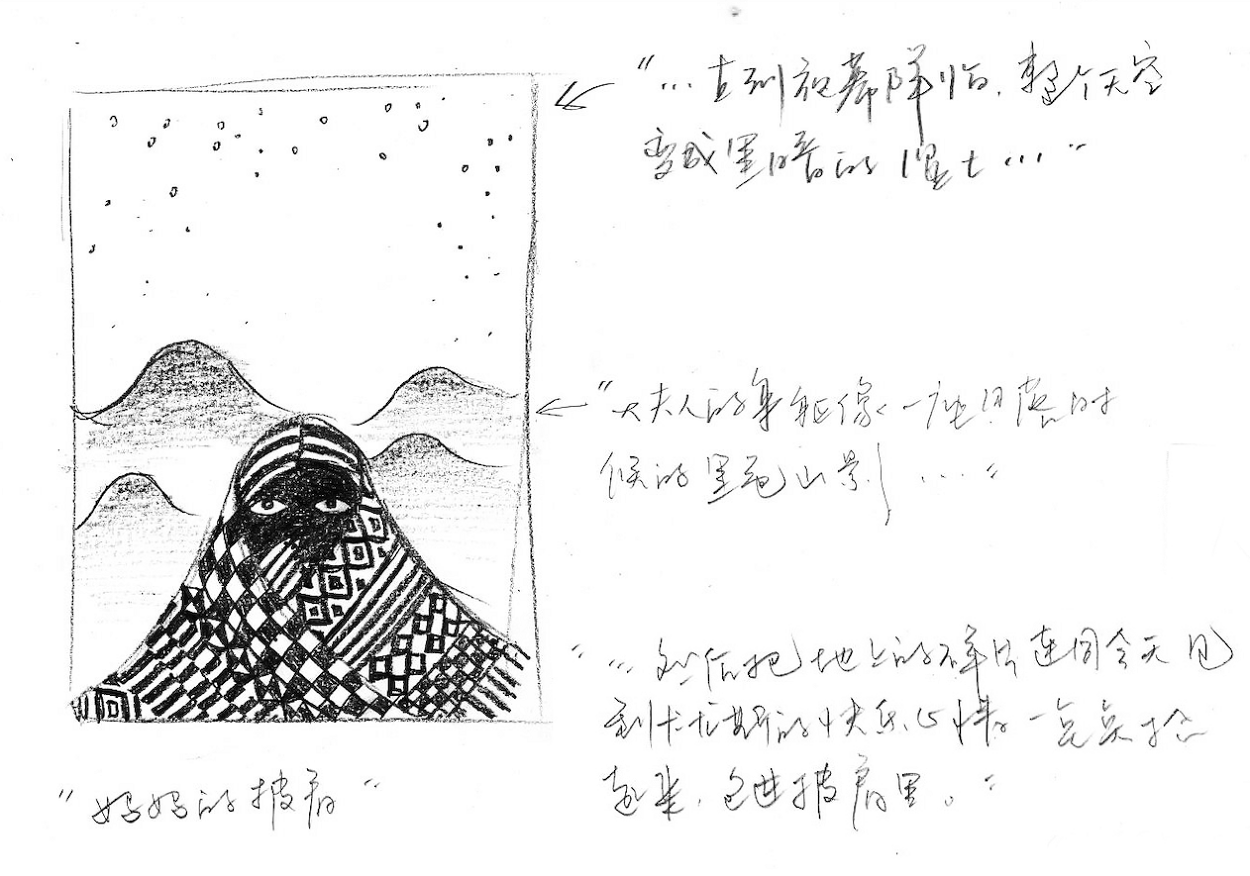 "…直到夜幕降临,整个天空
变成黑暗的墓土…"
"大夫人的身躯像一座日落时
候的黑色山影…."
"…然后把地上的碎片连同今天见
到卡尤斯的快乐心情一点点拾
起来,包进披肩里。"
"妈妈的披肩"